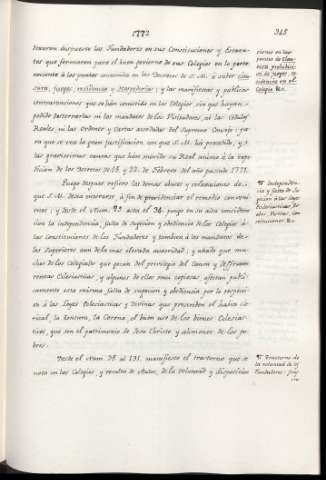 1772
345
tenecen dispuesto los Fundadores en sus Constituciones y Estatu-
tos que formaron para el buen govierno de sus Colegios en la parte
concerniente à los puntos contenidos en los Decretos de S. M. à saber clau-
sura, juegos, residencia y Hospederias; y las manifiestas y publicas
contravenciones que se han cometido en los Colegios, sin que hayan
podido desterrarlas ni los mandatos de los Visitadores, ni las Cedulas
Reales, ni las Ordenes y Cartas acordadas del Supremo Consejo: pa-
ra que se vea la gran justificacion con que S. M. ha procedido, y
las gravisimas causas que han movido su Real animo à la expe-
dicion de los Decretos de 15 y 22 de Febrero del año pasado 1771.
Luego despues refiere los demas abusos y relaxaciones de
que S. M. desea enterarse, à fin de providenciar el remedio conveni-
ente; y desde el Num. 93 asta el 96 pongo en su alta considera-
cion la independencia, falta de sugecion y obediencia de los Colegios à
las Constituciones de los Fundadores y tambien à los mandatos de
los Superiores aun de la mas elevada autoridad; y añado que mu-
chos de los Colegiales que gozan del privilegio del Canon y disfrutan
rentas Eclesiasticas, y algunos de ellas mui copiosas afectan publi-
camente esta misma falta de sugecion y obediencia por lo respecti-
vo à las Leyes Eclesiasticas y Divinas que prescriben el habito Cle-
rical, la tonsura, la Corona, el buen uso de los bienes Eclesias-
ticos, que son el patrimonio de Jesu Christo y alimentos de los po-
bres.
Desde el Num. 98 al 131. manifiesto el trastorno que se
nota en los Colegios, y resulta de Autos, de la voluntad y disposicion
ciones en los
puntos de Clau-
sura, prohibici-
on de juegos, re-
sidencia en el
Colegio &c.
¶ Independen-
cia y falta de Su-
gecion à las Leyes
Eclesiasticas, Re-
ales, Divinas, Con-
stituciones &c.
¶ Trastorno de
la voluntad de los
Fundadores: